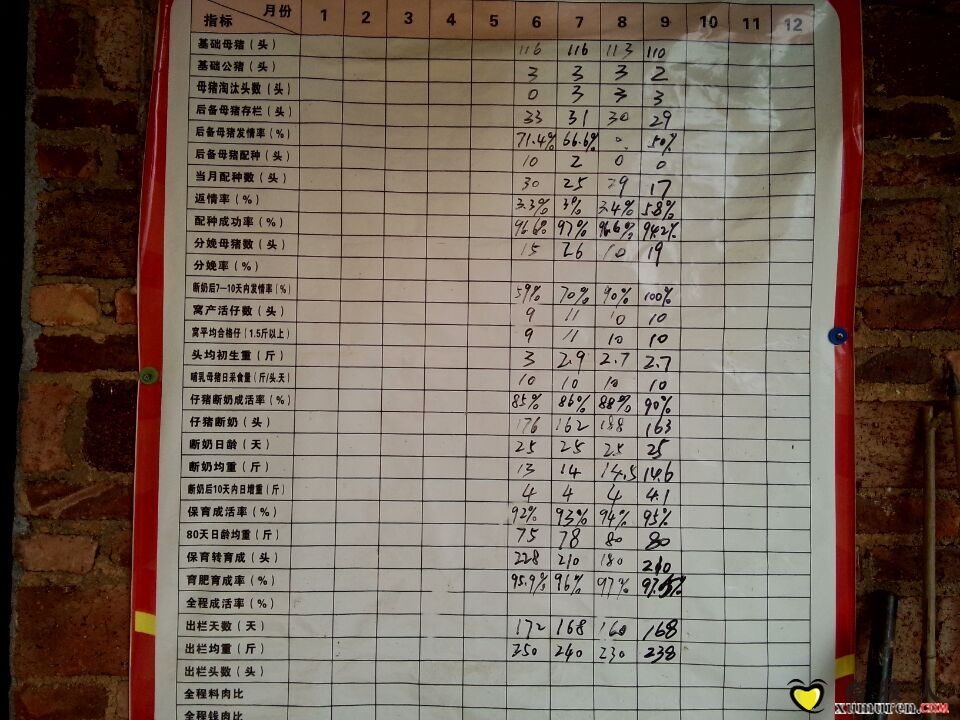 月份 指标 1 2 3 4 5 6 7 8 9 10 11 12
基础母猪（头） 116 116 113 110
基础公猪（头） 3 3 3 2
母猪淘汰头数（头） 0 3 3 3
后备母猪存栏（头） 33 31 30 29
后备母猪发情率（%） 71.4% 66.6% 0. 50%
后备母猪配种（头） 10 2 0 0
当月配种数（头） 30 25 29 17
返情率（%） 3.3% 3% 3.4% 5.8%
配种成功率（%） 96.6% 97% 96.6% 94.2%
分娩母猪数（头） 15 26 10 19
分娩率（%）
断奶后7—10天内发情率（%） 59% 70% 90% 100%
窝产活仔数（头） 9 11 10 10
窝平均合格仔（1.5斤以上） 9 11 10 10
头均初生重（斤） 3 2.9 2.7 2.7
哺乳母猪日采食量（斤/头.天） 10 10 10 10
仔猪断奶成活率（%） 85% 86% 88% 90%
仔猪断奶（头） 176 162 188 163
断奶日龄（天） 25 25 25 25
断奶均重（斤） 13 14 14.5 14.6
断奶后10天内日增重（斤） 4 4 4 4.1
保育成活率（%） 92% 93% 94% 95%
80天日龄均重（斤） 75 78 80 80
保育转育成（头） 228 210 180 210
育肥育成率（%） 95.9% 96% 97%
全程成活率（%）
出栏天数（天） 172 168 160 168
出栏均重（斤） 250 240 230 238
出栏头数（头）
全程料肉比
全程钱肉比
xumuren.com